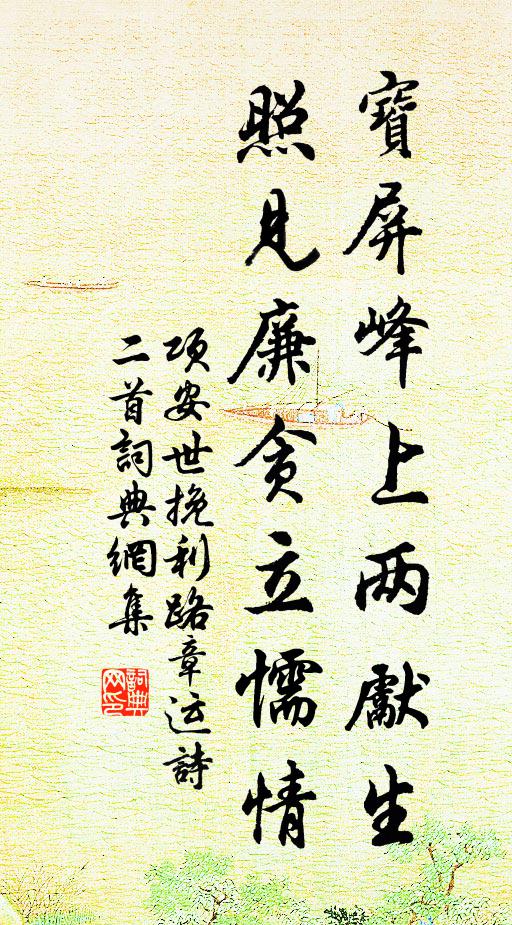 寶屏峰上两獻生
照見廉貪立懦情
项安世挽利路章运詩
二首詞典網集
詞典网印